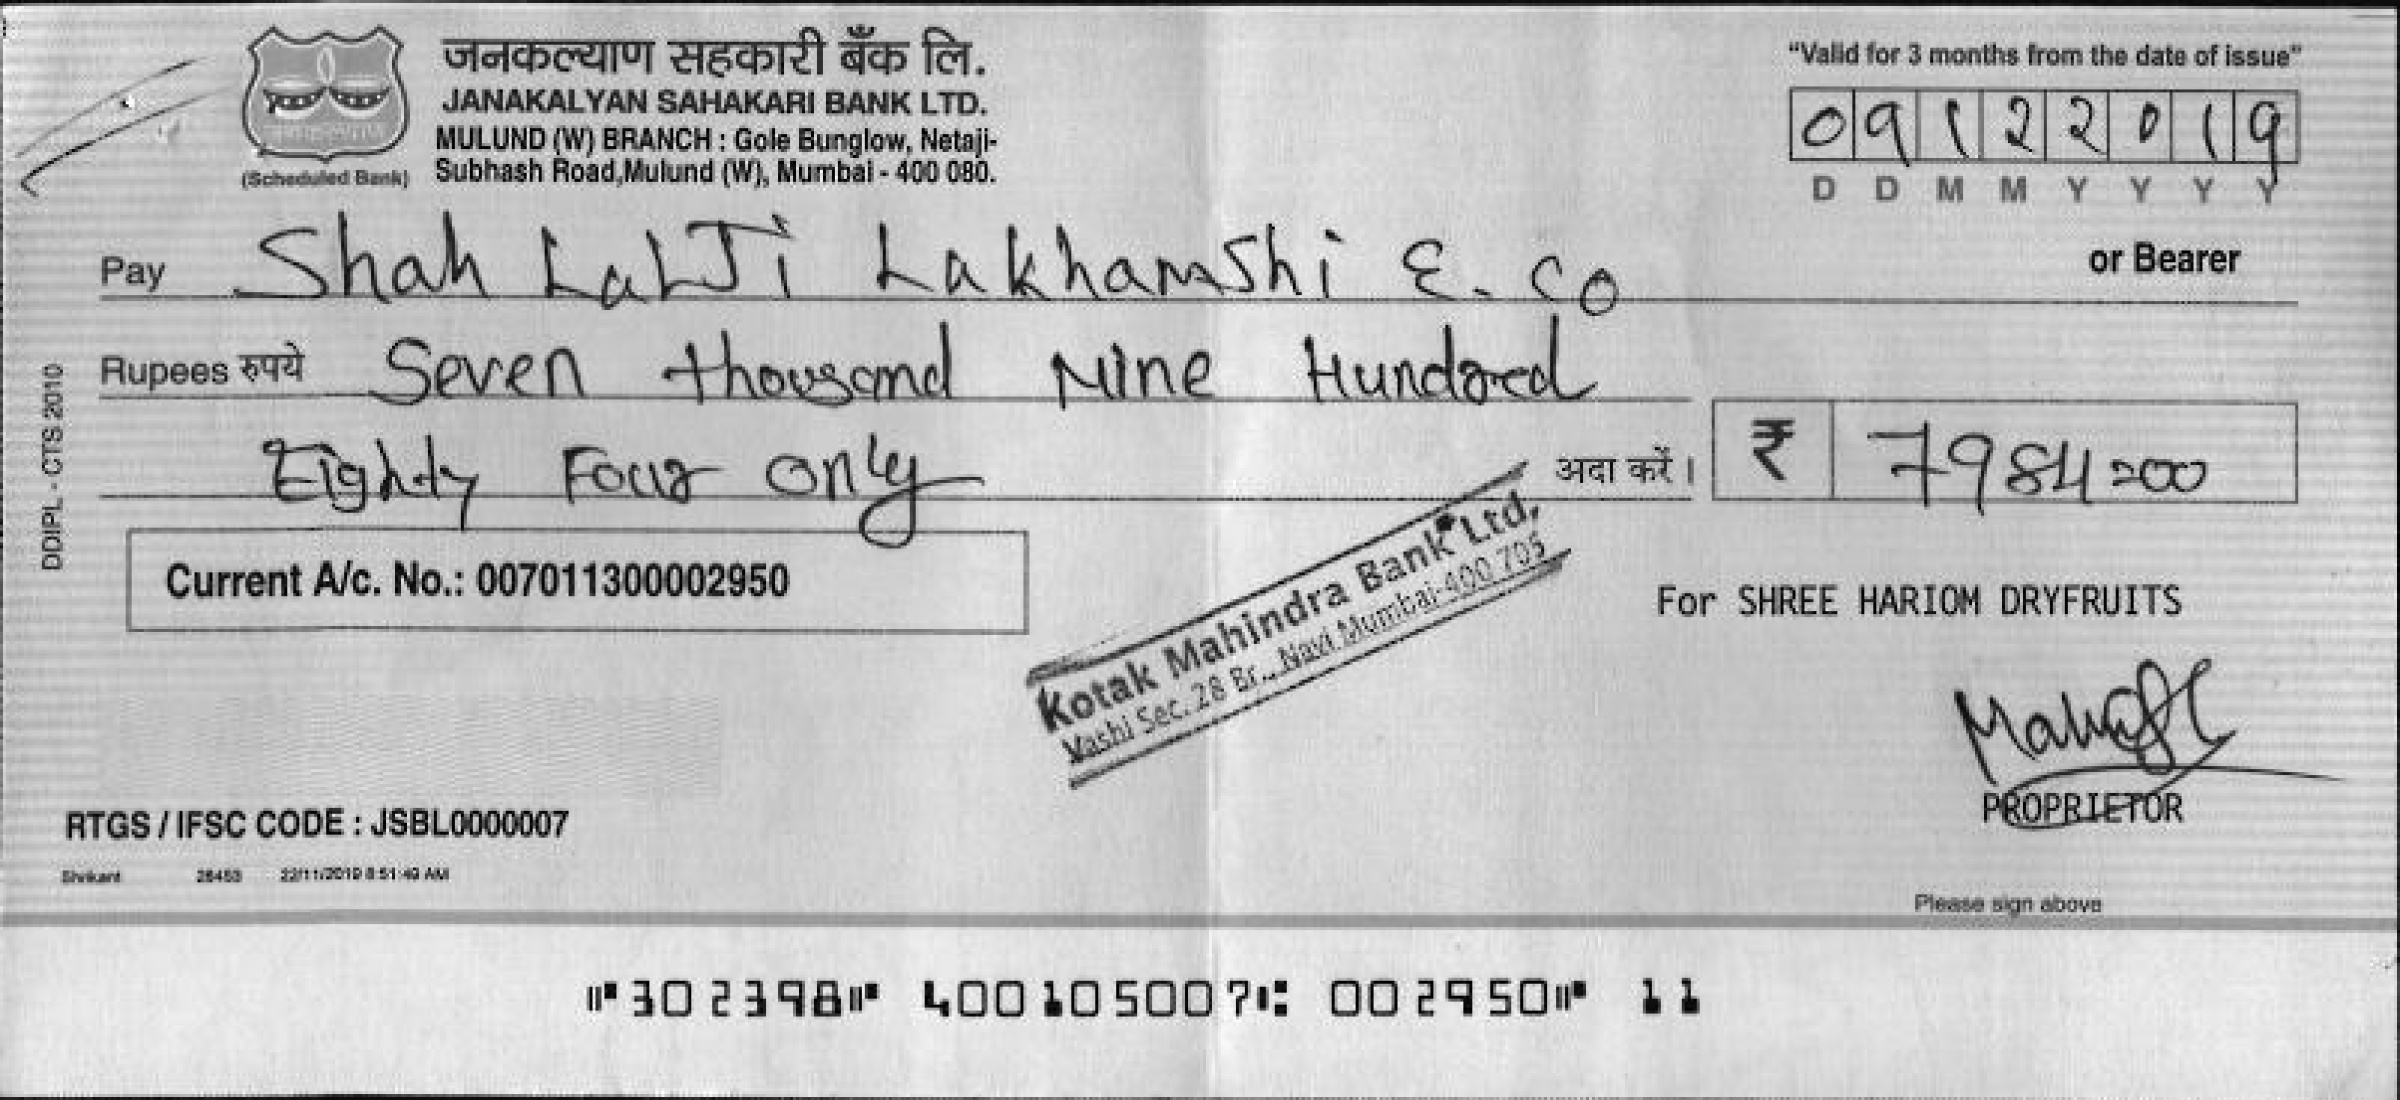 जनकल्याण सहकारी बँक लि.
JANAKALYAN SAHAKARI BANK LTD.
MULUND (W) BRANCH : Gole Bunglow, Netaji-
Subhash Road,Mulund (W), Mumbai - 400 080.
(Scheduled Bank)
"Valid for 3 months from the date of issue"
09122019
D D M M Y Y Y Y
Pay Shah LaLJi Lakhamshi &. Co
or Bearer
Rupees रुपये Seven thousand Nine Hundred
Eighty Four only अदा करें।
₹ 7984=00
DDIPL - CTS 2010
Current A/c. No.: 007011300002950
Kotak Mahindra Bank Ltd,
Vashi Sec. 28 Br., Navi Mumbai-400 705
For SHREE HARIOM DRYFRUITS
PROPRIETOR
RTGS / IFSC CODE : JSBL0000007
Shrikant 26453 22/11/2019 8:51:49 AM
Please sign above
⑈302398⑈ 400105007⑆ 002950⑈ 11